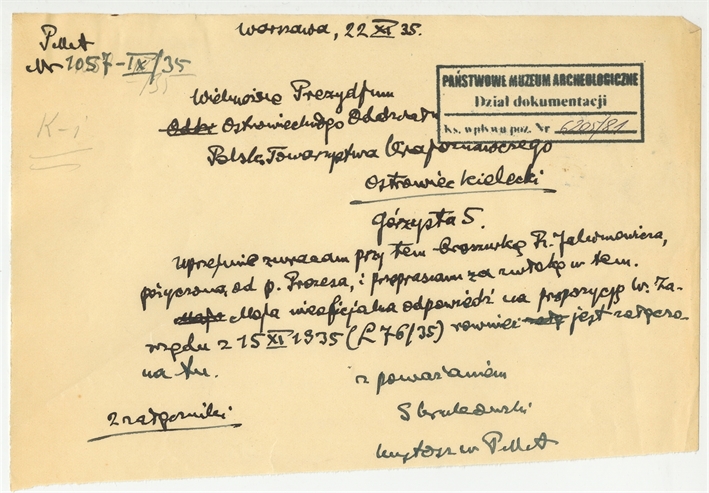 Warszawa, 22 XI 35.
PMA
Nr 1057-IX/35
/35
Wielmożne Prezydjum
Ostrowieckiego Oddziału
Polsk. Towarzystwa Krajoznawczego
Ostrowiec Kielecki
Górzysta 5.
PAŃSTWOWE MUZEUM ARCHEOLOGICZNE
Dział dokumentacji
Ks. wpływu poz. Nr 6205/81
K-i
Uprzejmie zwracam przy tem broszurkę
pożyczoną od p. Prezesa, i przepraszam za zwłokę w tem.
Moja nieoficjalna odpowiedź na propozycję W. Za-
rządu z 15 XI 1935 (L 76/35) również jest załączo-
na tu.
z poważaniem
2 załączniki
w PMA